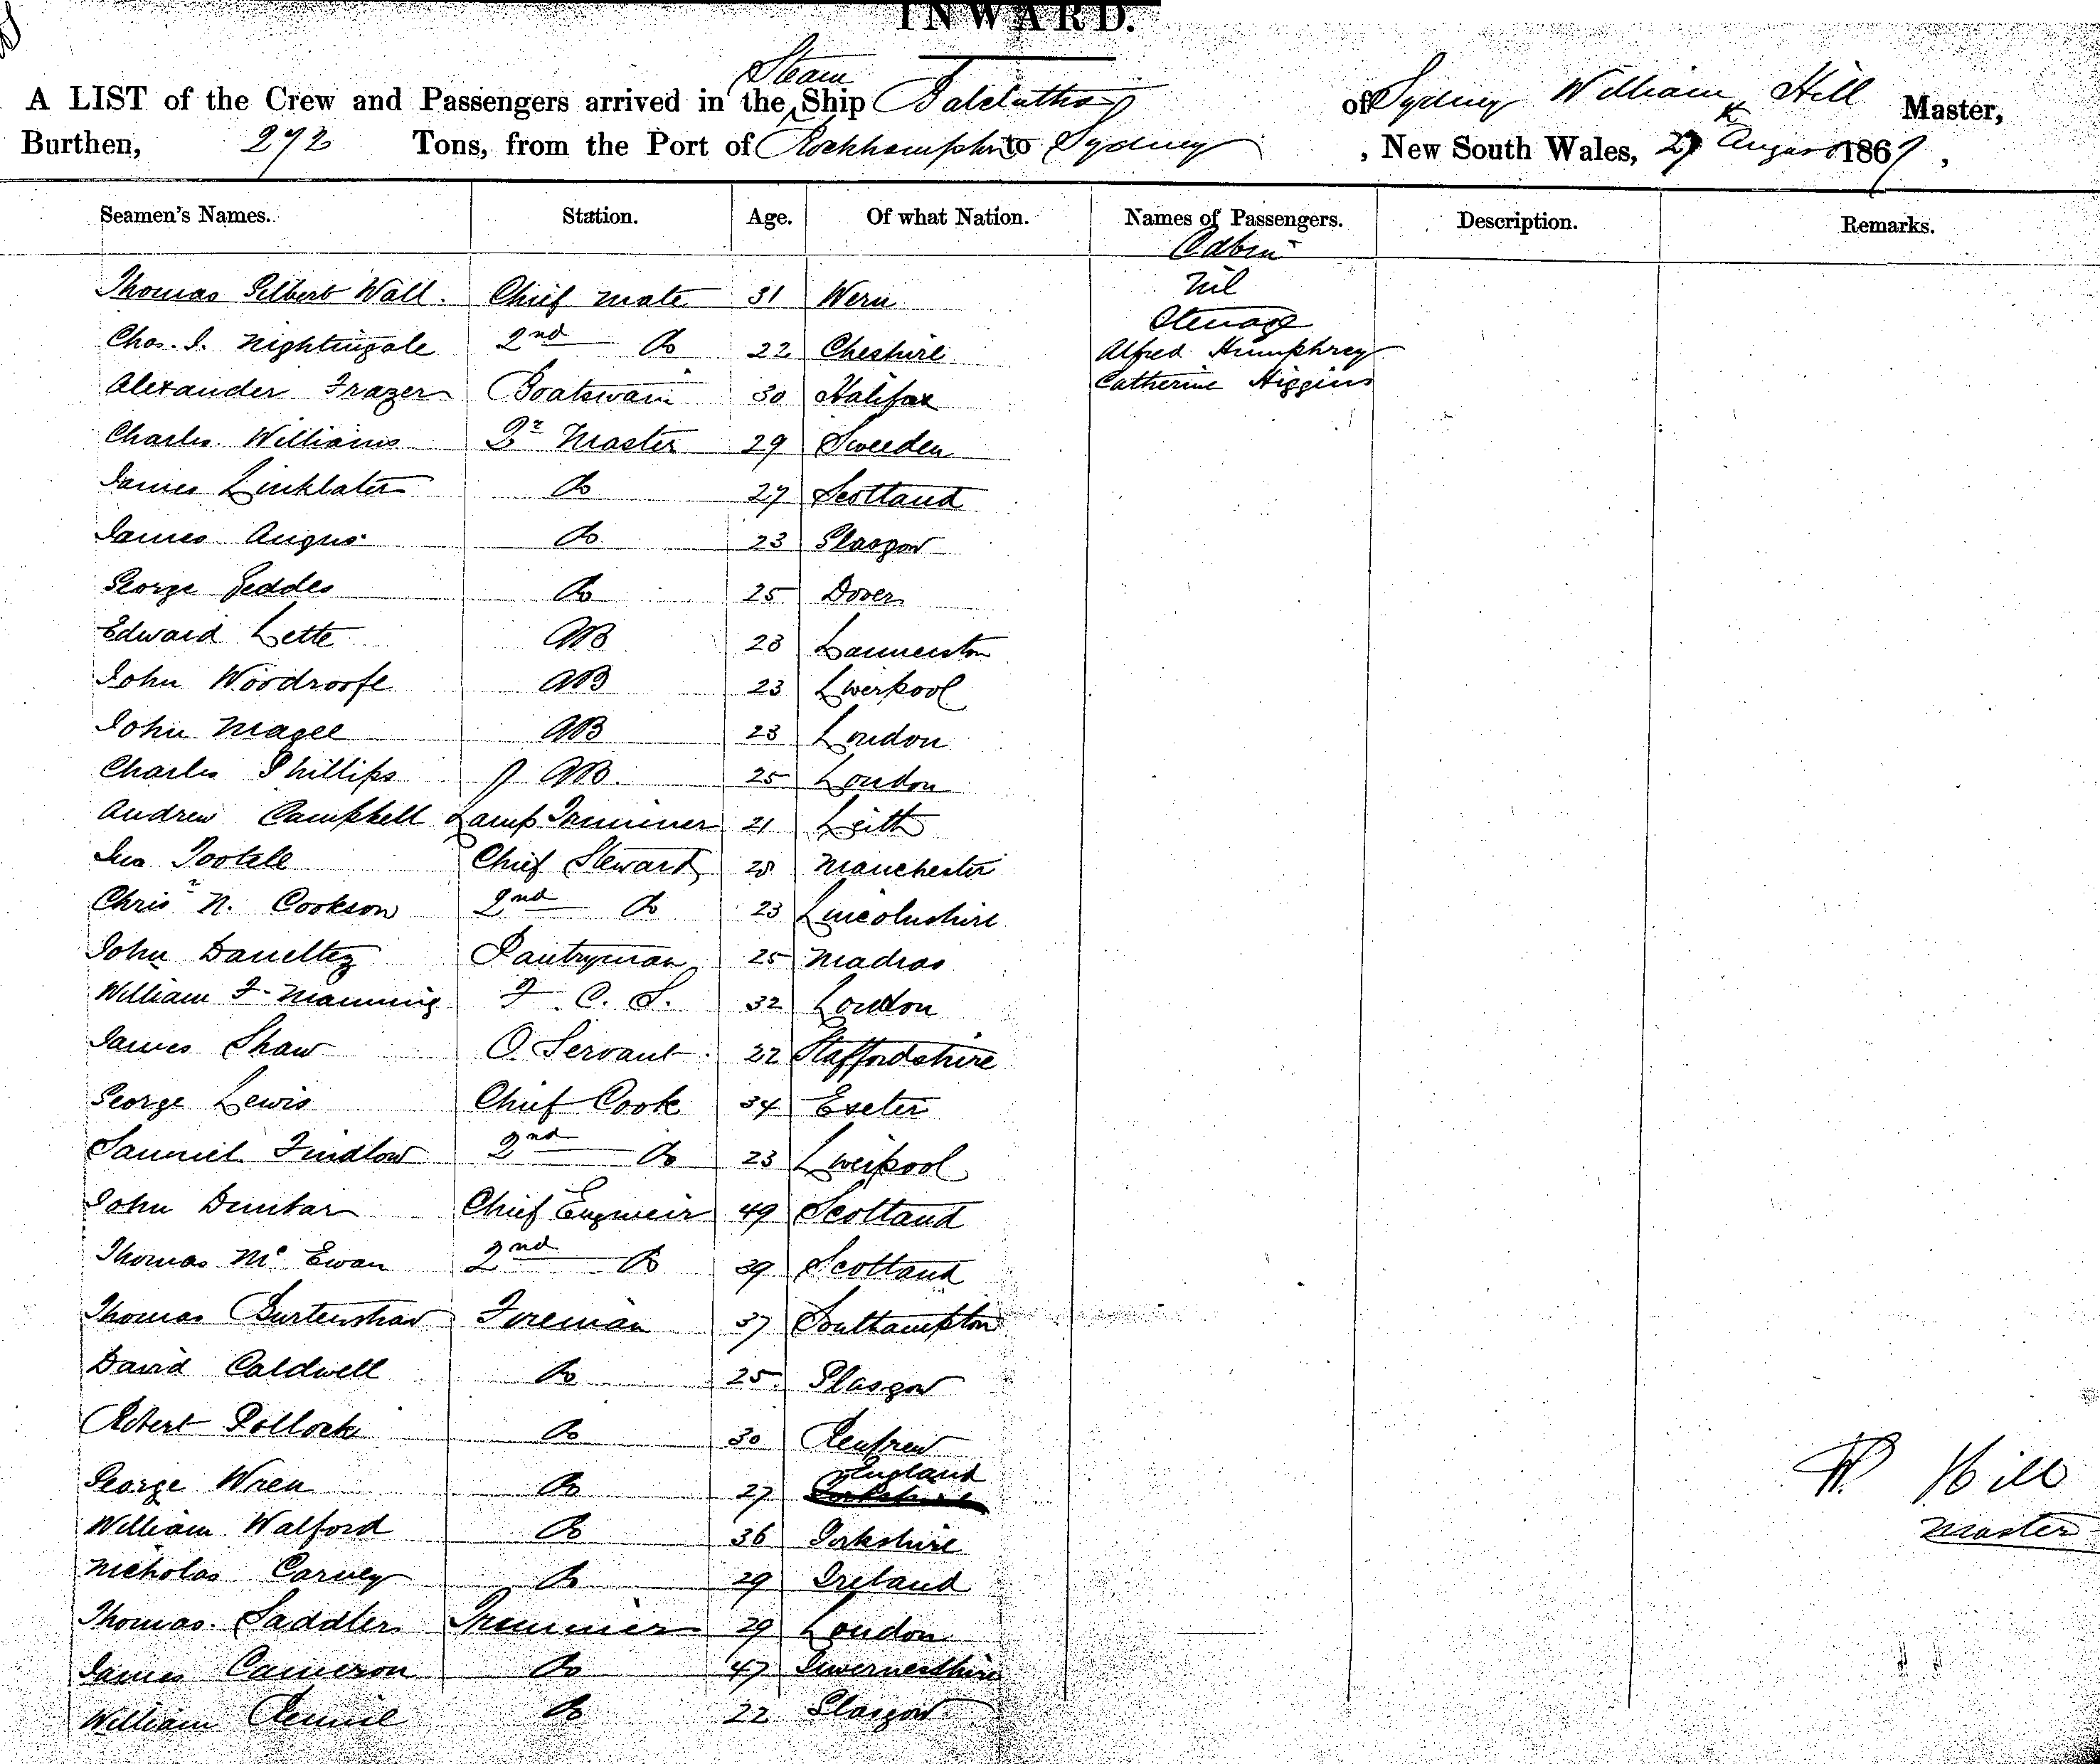 INWARD.
A LIST of the Crew and Passengers arrived in the Steam Ship Balclutha of Sydney William Hill Master,
Burthen, 272 Tons, from the Port of Rockhampton to Sydney, New South Wales, 27th August 1867,
Seamen's Names. Station. Age. Of what Nation. Names of Passengers. Description. Remarks.
Cabin
Thomas Gilbert Wall. Chief Mate 31 Wern Nil
Steerage
Chas. I. Nightingale 2nd Do 22 Cheshire Alfred Humphrey
Alexander Frazer Boatswain 30 Halifax Catherine Higgins
Charles Williams Qr Master 29 Sweeden
James Linklater Do 27 Scotland
James Angus Do 23 Glasgow
George Geddes Do 25 Dover
Edward Lette AB 23 Launceston
John Woodroofe AB 23 Liverpool
John Magee AB 23 London
Charles Phillips AB 25 London
Andrew Campbell Lamp Trimmer 21 Leith
Jno Tootell Chief Steward Manchester
Chrisr N. Cookson 2nd Do 23 Lincolnshire
John Daneltez Pantryman 25 Madras
William F. Manning F. C. S. 32 London
James Shaw O. Servant 22 Staffordshire
George Lewis Chief Cook 34 Exeter
Samuel Findlow 2nd Do 23 Liverpool
John Dunbar Chief Engineir 49 Scotland
Thomas Mc Ewan 2nd Do 39 Scotland
Thomas Burtenshaw Fireman 37 Southampton
David Caldwell Do 25 Glasgow
Robert Pollock Do 30 Renfrew
England
George Wren Do 27 Yorkshire
William Walford Do 36 Yorkshire
Nicholas Carney Do 29 Ireland
Thomas Saddler Trimmer 29 London
James Cameron Do 47 Invernesshire
William Rennie Do 22 Glasgow
W. Hill
Master